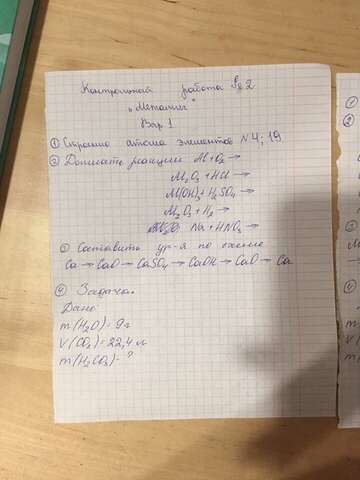 Контрольная работа № 2
"Металлы"
Вар 1
① Строение атома элементов N 4; 19
② Дописать реакции Al + O₂ →
Al₂O₃ + HCl →
Al(OH)₃ + H₂SO₄ →
Al₂O₃ + H₂ →
Na + HNO₃ →
③ Составить ур-я по схеме
Ca → CaO → CaSO₄ → CaOH → CaO → Ca
④ Задача.
Дано:
m(H₂O) = 9г
V(CO₂) = 22,4 л
m(H₂CO₃) - ?